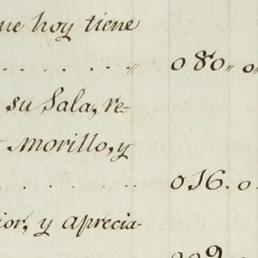 ue hoy tiene
. . . . . . " 080" 0"
su Sala, re-
Morillo, y
. . . . . . . . 016. 0
ior, y aprecia-
009